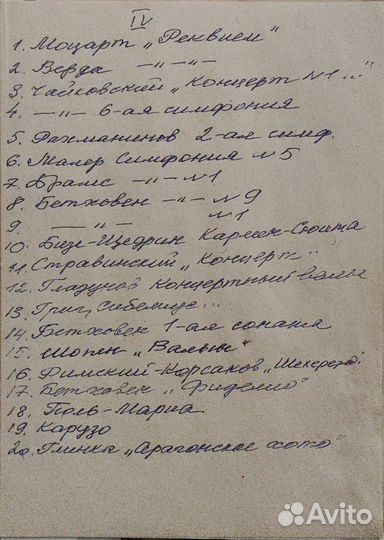 IV
1. Моцарт „Реквием"
2. Верди —"—"—
3. Чайковский „Концерт №1..."
4. —"— 6-ая симфония
5. Рахманинов 2-ая симф.
6. Малер Симфония №5
7. Брамс —"— №1
8. Бетховен —"— №9
9. —"— №1
10. Бизе-Щедрин Кармен-Сюита
11. Стравинский „Концерт..
12. Глазунов Концертный вальс
13. Григ, Сибелиус...
14. Бетховен 1-ая соната
15. Шопен „Вальсы"
16. Римский-Корсаков „Шехерезада
17. Бетховен „Фиделио"
18. Поль-Мариа
19. Карузо
20. Глинка „Арагонское хото"
Avito